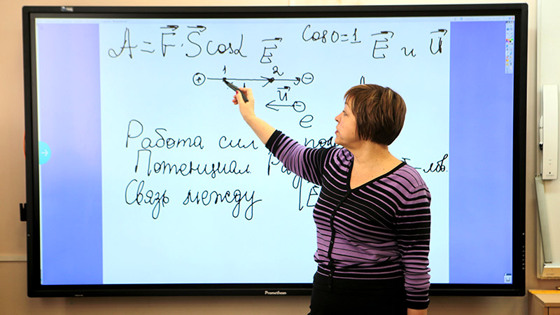 A = F⃗ · S⃗ cosα    cos0=1    E⃗ и u⃗
E⃗
+ 1 2 −
u⃗ −
e
Работа сил
Потенциал
Связь между E
Promethean